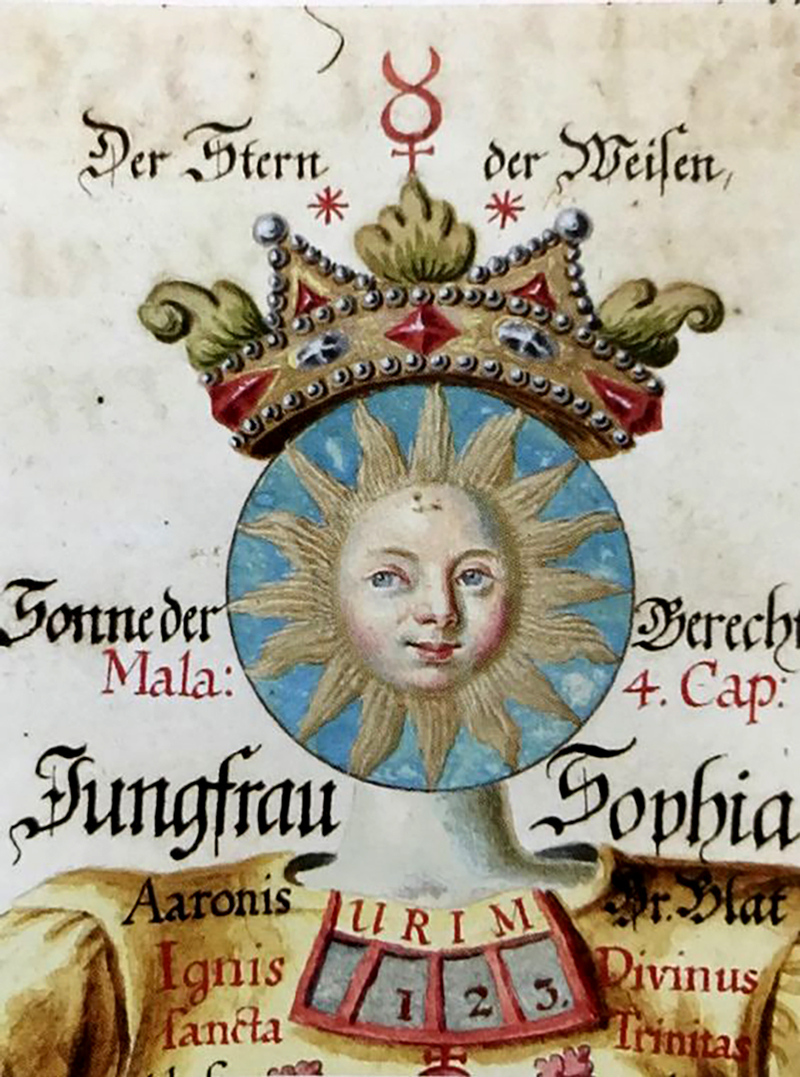 Der Stern der Weisen,
Sonne der Gerecht
Mala: 4. Cap:
Jungfrau Sophia
Aaronis URIM Br. Blat
Ignis 1 2 3. Divinus
sancta Trinitas